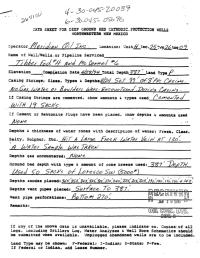 4-30-045-20039
26N11W
6-30-045-05076
DATA SHEET FOR DEEP GROUND BED CATHODIC PROTECTION WELLS
NORTHWESTERN NEW MEXICO
Operator Meridian Oil Inc. Location: Unit
Name of Well/Wells or Pipeline Serviced
#11 And McDaniel #6
Elevation Completion Date Total Depth 387' Land Type F
Casing Strings, Sizes, Types & Depths Set 99' Of 8" PVC Casing.
No Gas, Water, or Boulders Were Encountered During Casing.
If Casing Strings are cemented, show amounts & types used Cemented
With 19 Sacks.
If Cement or Bentonite Plugs have been placed, show depths & amounts used
None
Depths & thickness of water zones with description of water: Fresh, Clear,
Salty, Sulphur, Etc. Hit A Large Fresh Water Vein At 130'.
A Water Sample Was Taken.
Depths gas encountered: None
Ground bed depth with type & amount of coke breeze used: 387' Depth.
Used 50 Sacks Of Loresco SW (5000#)
Depths anodes placed:
Depths vent pipes placed: Surface To 387'.
Vent pipe perforations: Bottom 270'.
Remarks:
If any of the above data is unavailable, please indicate so. Copies of all
logs, including Drillers Log, Water Analyses & Well Bore Schematics should
be submitted when available. Unplugged abandoned wells are to be included.
Land Type may be shown: F-Federal; I-Indian; S-State; P-Fee.
If Federal or Indian, add Lease Number.